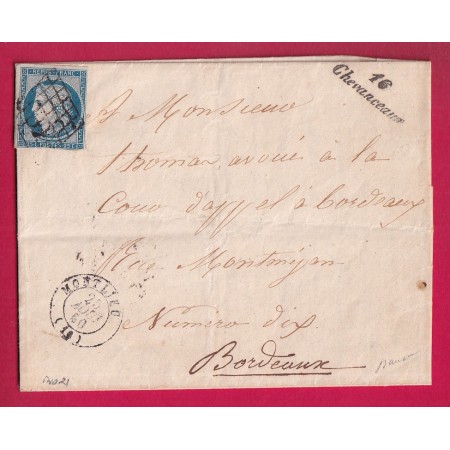 REPUB. FRANC.
25 C POSTES 25 C
16
Chevanceaux
A Monsieur
thomas avoué à la
Cour d'appel à bordeaux
Rue Montméjan
Numéro dix
Bordeaux
MONTLIEU
(16)